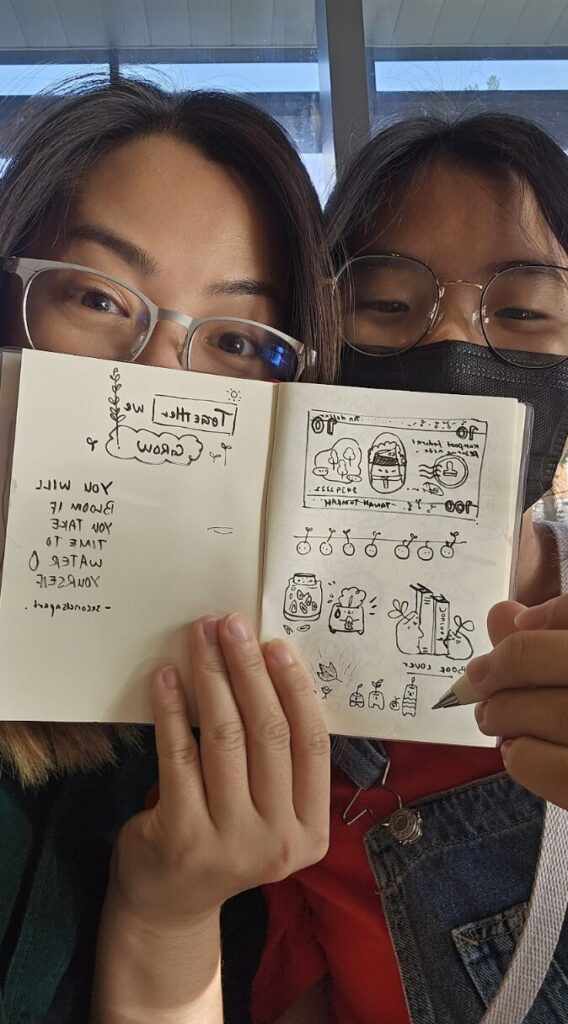 Together we
GROW
YOU WILL
BLOOM IF
YOU TAKE
TIME TO
WATER
YOURSELF
- secondsapart.
10
10
federal
100
BOOK LOVER